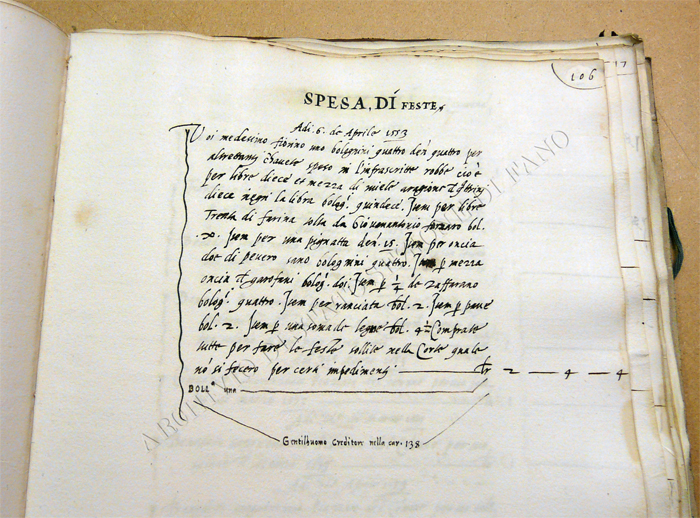 106
17
SPESA, DI FESTE
Adi. 6. de Aprile 1553
Voi medesimo fiorino uno bolognini quattro den. quattro per
altretanti speso in l'infrascritte robbe cioè
per libre diece et mezza di miele aragione
diece la libra bolog. quindece. Item per libre
Trenta di farina tolta da Giovanantonio fornaro bol.
20. Item per una pignatta den. 15. Item per oncia
doi di pevero sano bolognini quattro. Item p mezza
oncia garofani bolog. doi. Item p 1/4 de zaffarano
bolog. quattro. Item per ranciata bol. 2. Item p
bol. 2. Item p una soma de legne bol. 4 Comprate
tutte per fare le feste sollite nella Corte quale
nō si fecero per certi impedimenti 2 — 4 — 4
BOLL.ⁿ una
Gentilhuomo Creditore nella car. 138
ARCHIVIO DI STATO DI FANO